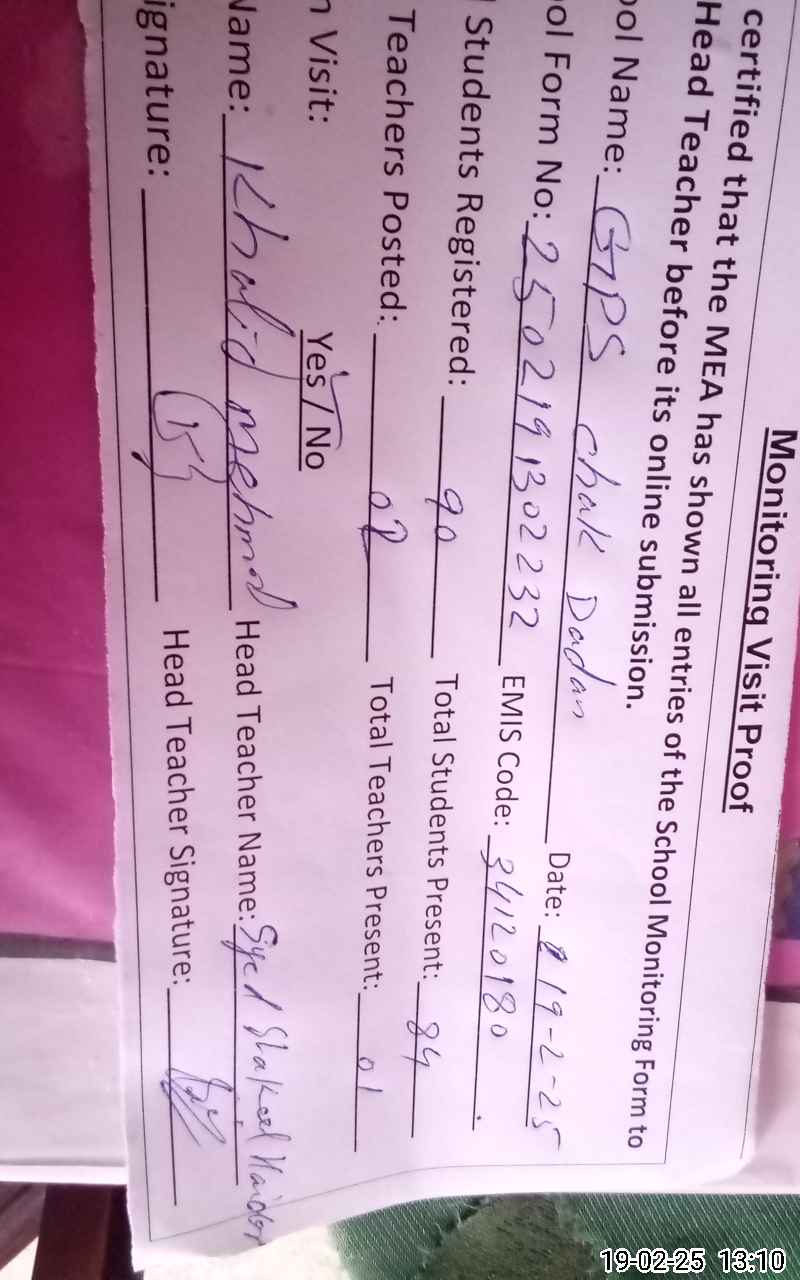 Monitoring Visit Proof
certified that the MEA has shown all entries of the School Monitoring Form to
Head Teacher before its online submission.
ool Name: GPS chak Dadan Date: 19-2-25
ol Form No: 2502191302232 EMIS Code: 34120180
Students Registered: 90 Total Students Present: 84
Teachers Posted: 02 Total Teachers Present: 01
n Visit: Yes / No
Name: Khalid Mehmod Head Teacher Name: Syed Shakeel Haider
ignature: Head Teacher Signature:
19-02-25 13:10